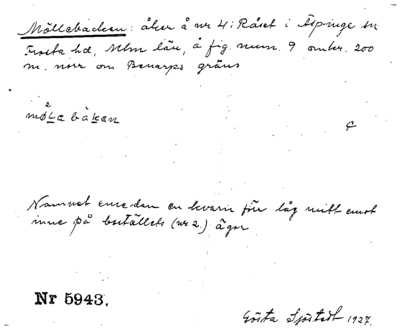 Möllebacken: åker å nr 4: Råset i Äspinge sn
Frosta hd, Mlm län, å fig. num. 9 omkr. 200
m. norr om Benarps gräns
møla båkan
¢
Namnet emedan en kvarn förr låg mitt emot
inne på boställets (nr 2.) ägor
Nr 5943.
Gösta Sjöstedt 1927.